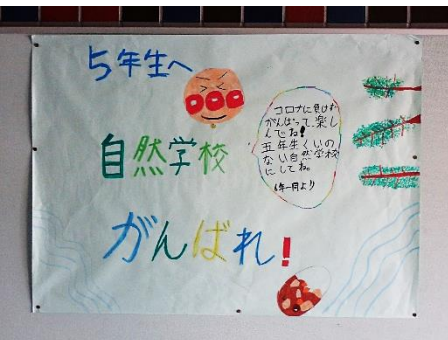 5年生へ
自然学校
がんばれ!
コロナに負けず
がんばって、楽し
んでね!
五年生くいの
ない自然学校
にしてね。
6年一同より